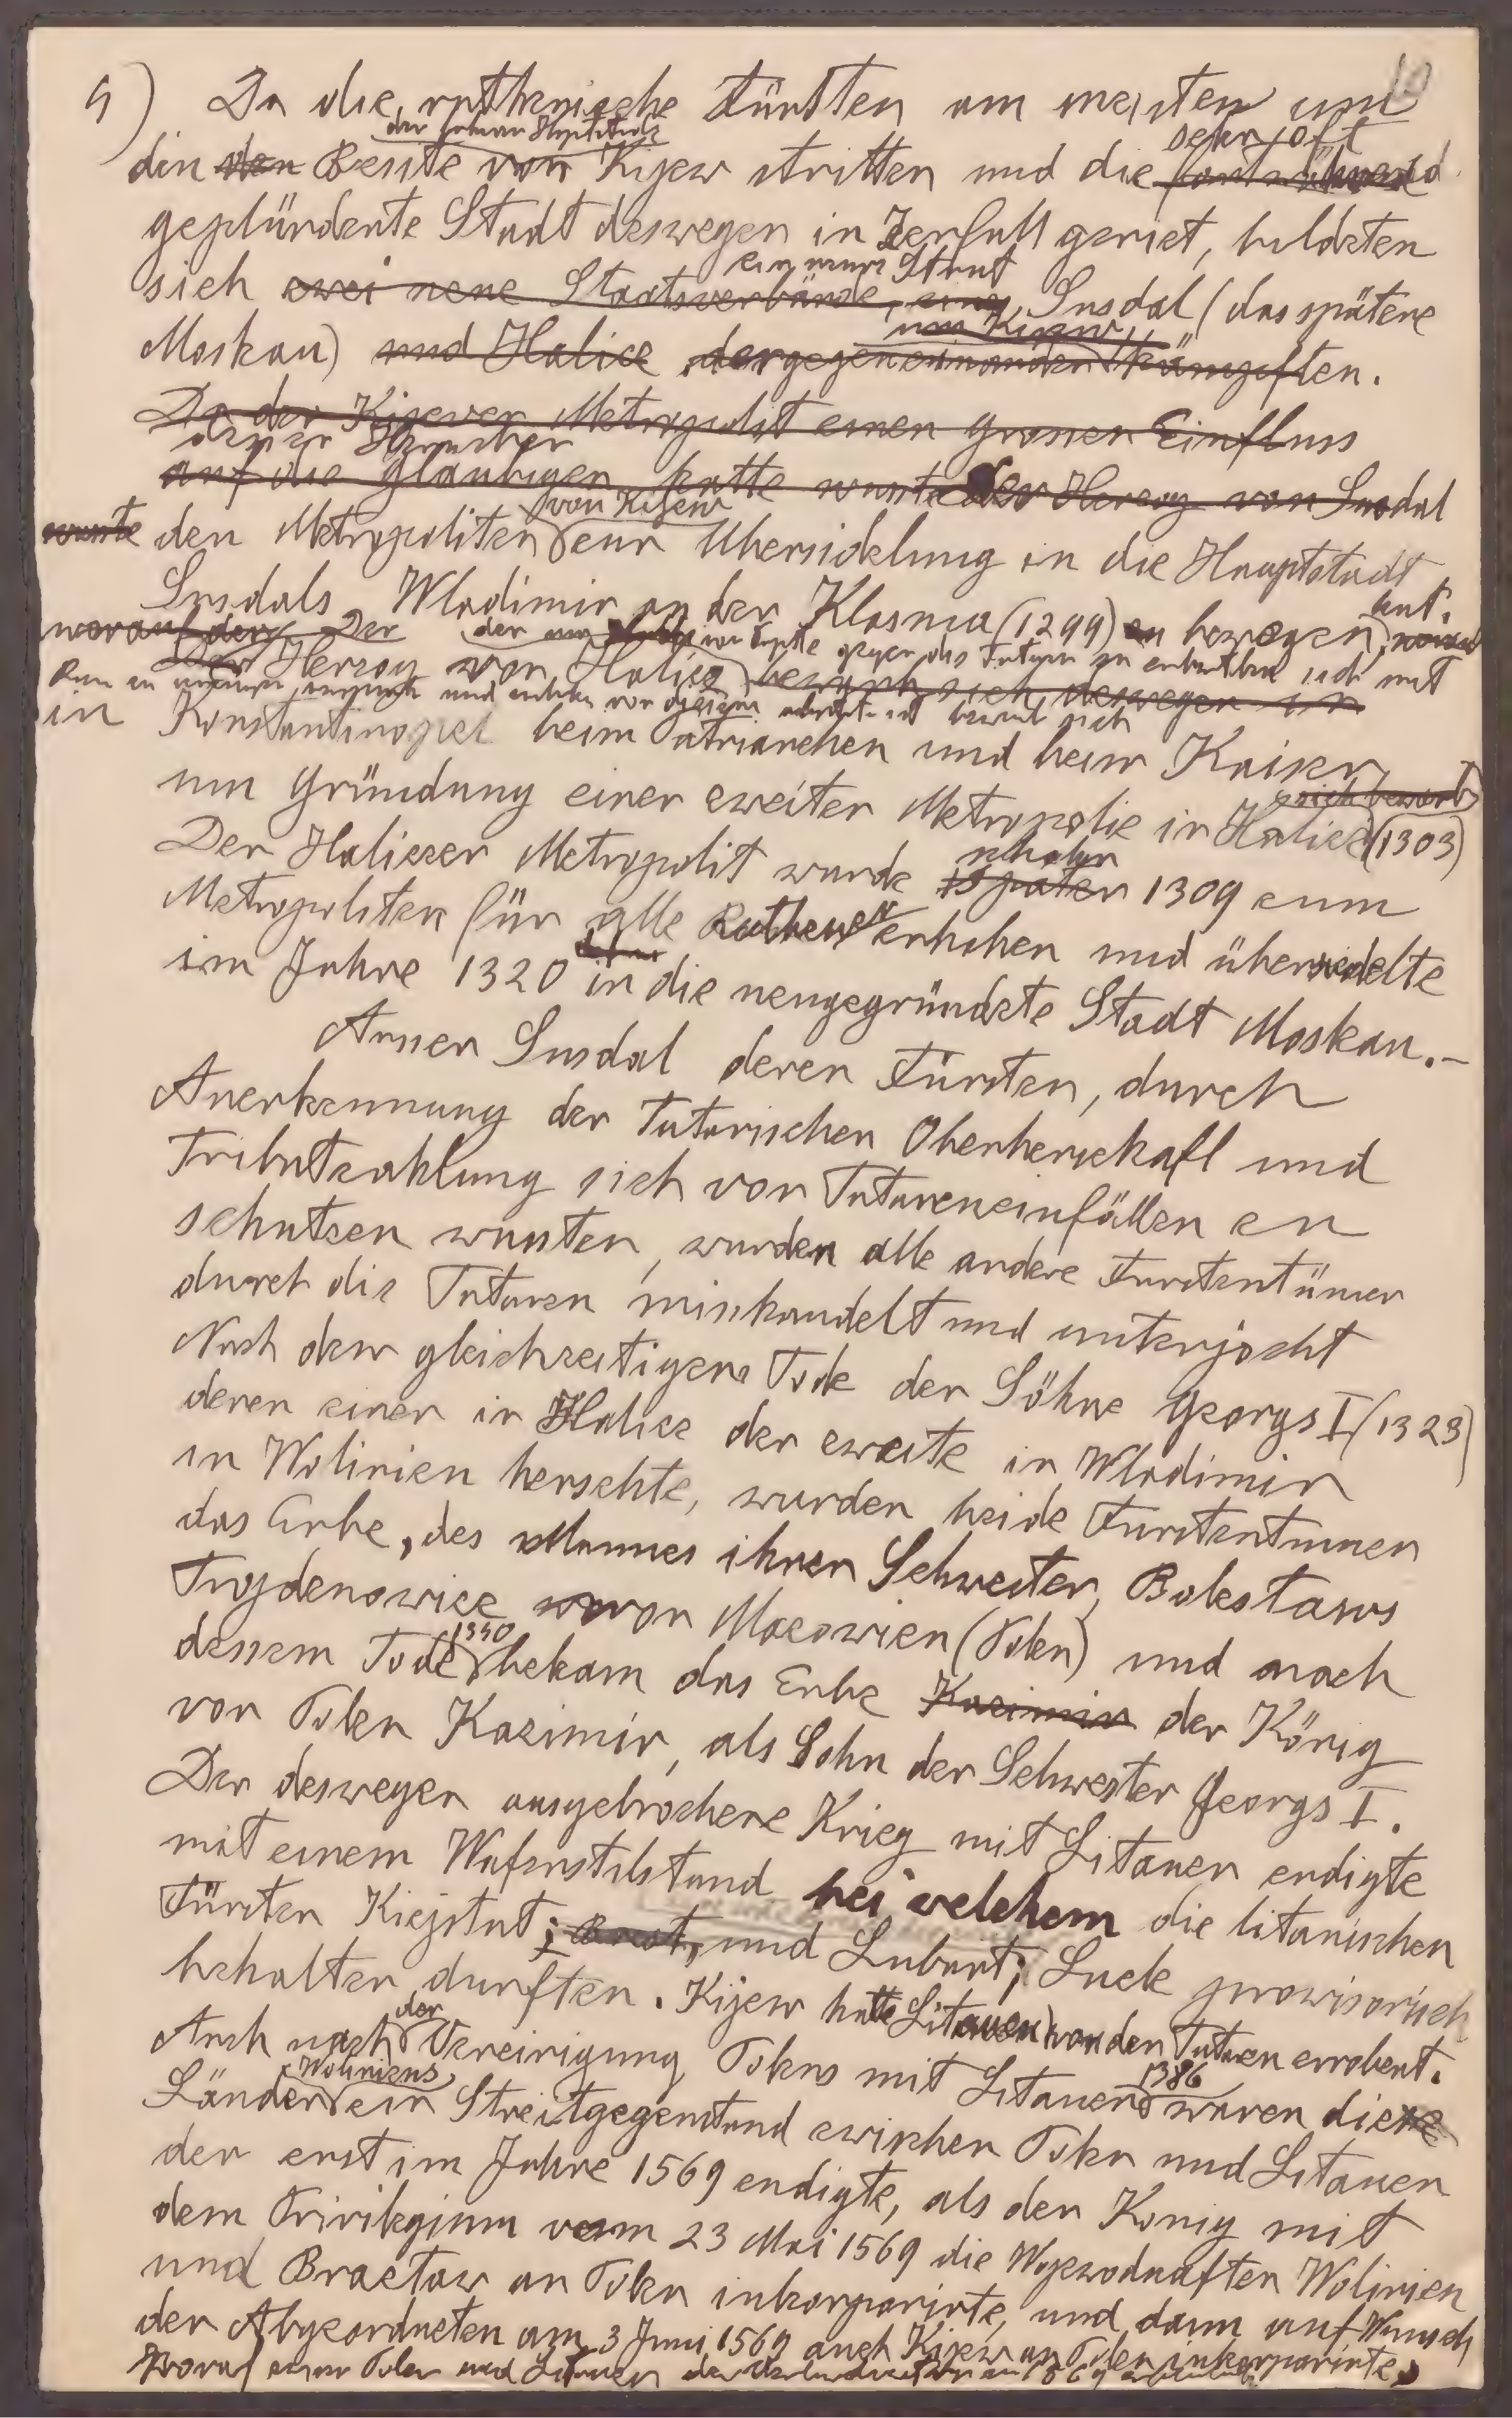 9) Da die ruthenische Fürsten am meisten um
sehr oft
din den Besitz von Kijew stritten und die fortwährend
geplünderte Stadt deswegen in Zerfall geriet, bildeten
ein neuer Staat
sich zwei neue Staatsverbände, Susdal (das spätere
um Kijew
Moskau) und Halicz kämpften.
Da der Kijever Metropolit einen grossen Einfluss
dessen Herrscher
auf die Gläubigen hatte wuste der Herzog von Susdal
von Kijew
wuste den Metropoliten zur Übersidelung in die Hauptstadt
Susdals Wladimir an der Klasma (1299) zu bewegen
worauf der Der
Der Herzog von Halicz bewarb sich deswegen in
bewarb sich
in Konstantinopel beim Patriarchen und beim Kaiser
sich bewarb
um Gründung einer zweiten Metropolie in Halicz (1303)
Der Haliczer Metropolit wurde später 1309 zum
Metropoliten für alle Ruthenen erhoben und übersiedelte
im Jahre 1320 in die neugegründete Stadt Moskau.-
Ausser Susdal deren Fürsten, durch
Anerkennung der Tatarischen Oberherschaft und
Tributzahlung sich von Tatareneinfällen zu
schutzen wusten, wurden alle andere Furstentümer
durch die Tataren mishandelt und unterjocht
Nach dem gleichzeitigen Tode der Söhne Georgs I (1323)
deren einer in Halicz der zweite in Wladimir
in Wolinien herschte, wurden beide Furstentumer
das Erbe, des Mannes ihrer Schwester, Boleslaws
Trojdenowicz von Mazowien (Polen) und nach
1340
dessem Tode bekam das Erbe Kazimir der König
von Polen Kazimir, als Sohn der Schwester Georgs I.
Der deswegen ausgebrochene Krieg mit Litauen endigte
mit einem Wafenstilstand bei welchem die litauischen
Fürsten Kiejstut; Brest, und Lubart; Luck prowisorisch
behalten durften. Kijew hatte Litauen von den Tataren erobert.
der
Auch nach Vereinigung Polens mit Litauen waren diese
1386
Woliniens
Länder ein Streitgegenstand zwischen Polen und Litauen
der erst im Jahre 1569 endigte, als der König mit
dem Privilegium vom 23 Mai 1569 die Wojewodschaften Wolinien
und Bracław an Polen inkorporirte, und dann auf Wunsch
der Abgeordneten am 3 Juni 1569 auch Kijew an Polen inkorporirte,
Polen und Litauen 1569